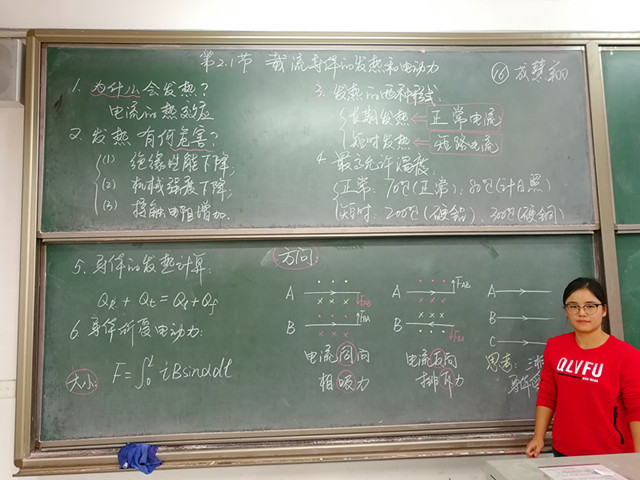 第2.1节 载流导体的发热和电动力
⑯ 成慧翔
1. 为什么会发热?
电流的热效应
2. 发热有何危害?
(1) 绝缘性能下降;
(2) 机械强度下降;
(3) 接触电阻增加.
3. 发热的两种形式:
长期发热 ⇐ 正常电流
短时发热 ⇐ 短路电流
4. 最高允许温度:
正常: 70℃(正常); 80℃(计日照)
短时: 200℃(硬铝)、300℃(硬铜)
5. 导体的发热计算:
6. 导体所受电动力:
大小:
方向:
A
B
F_AB
F_BA
电流同向
相吸力
A
B
F_AB
F_BA
电流反向
排斥力
A
B
C
思考: 三相
QLVFU